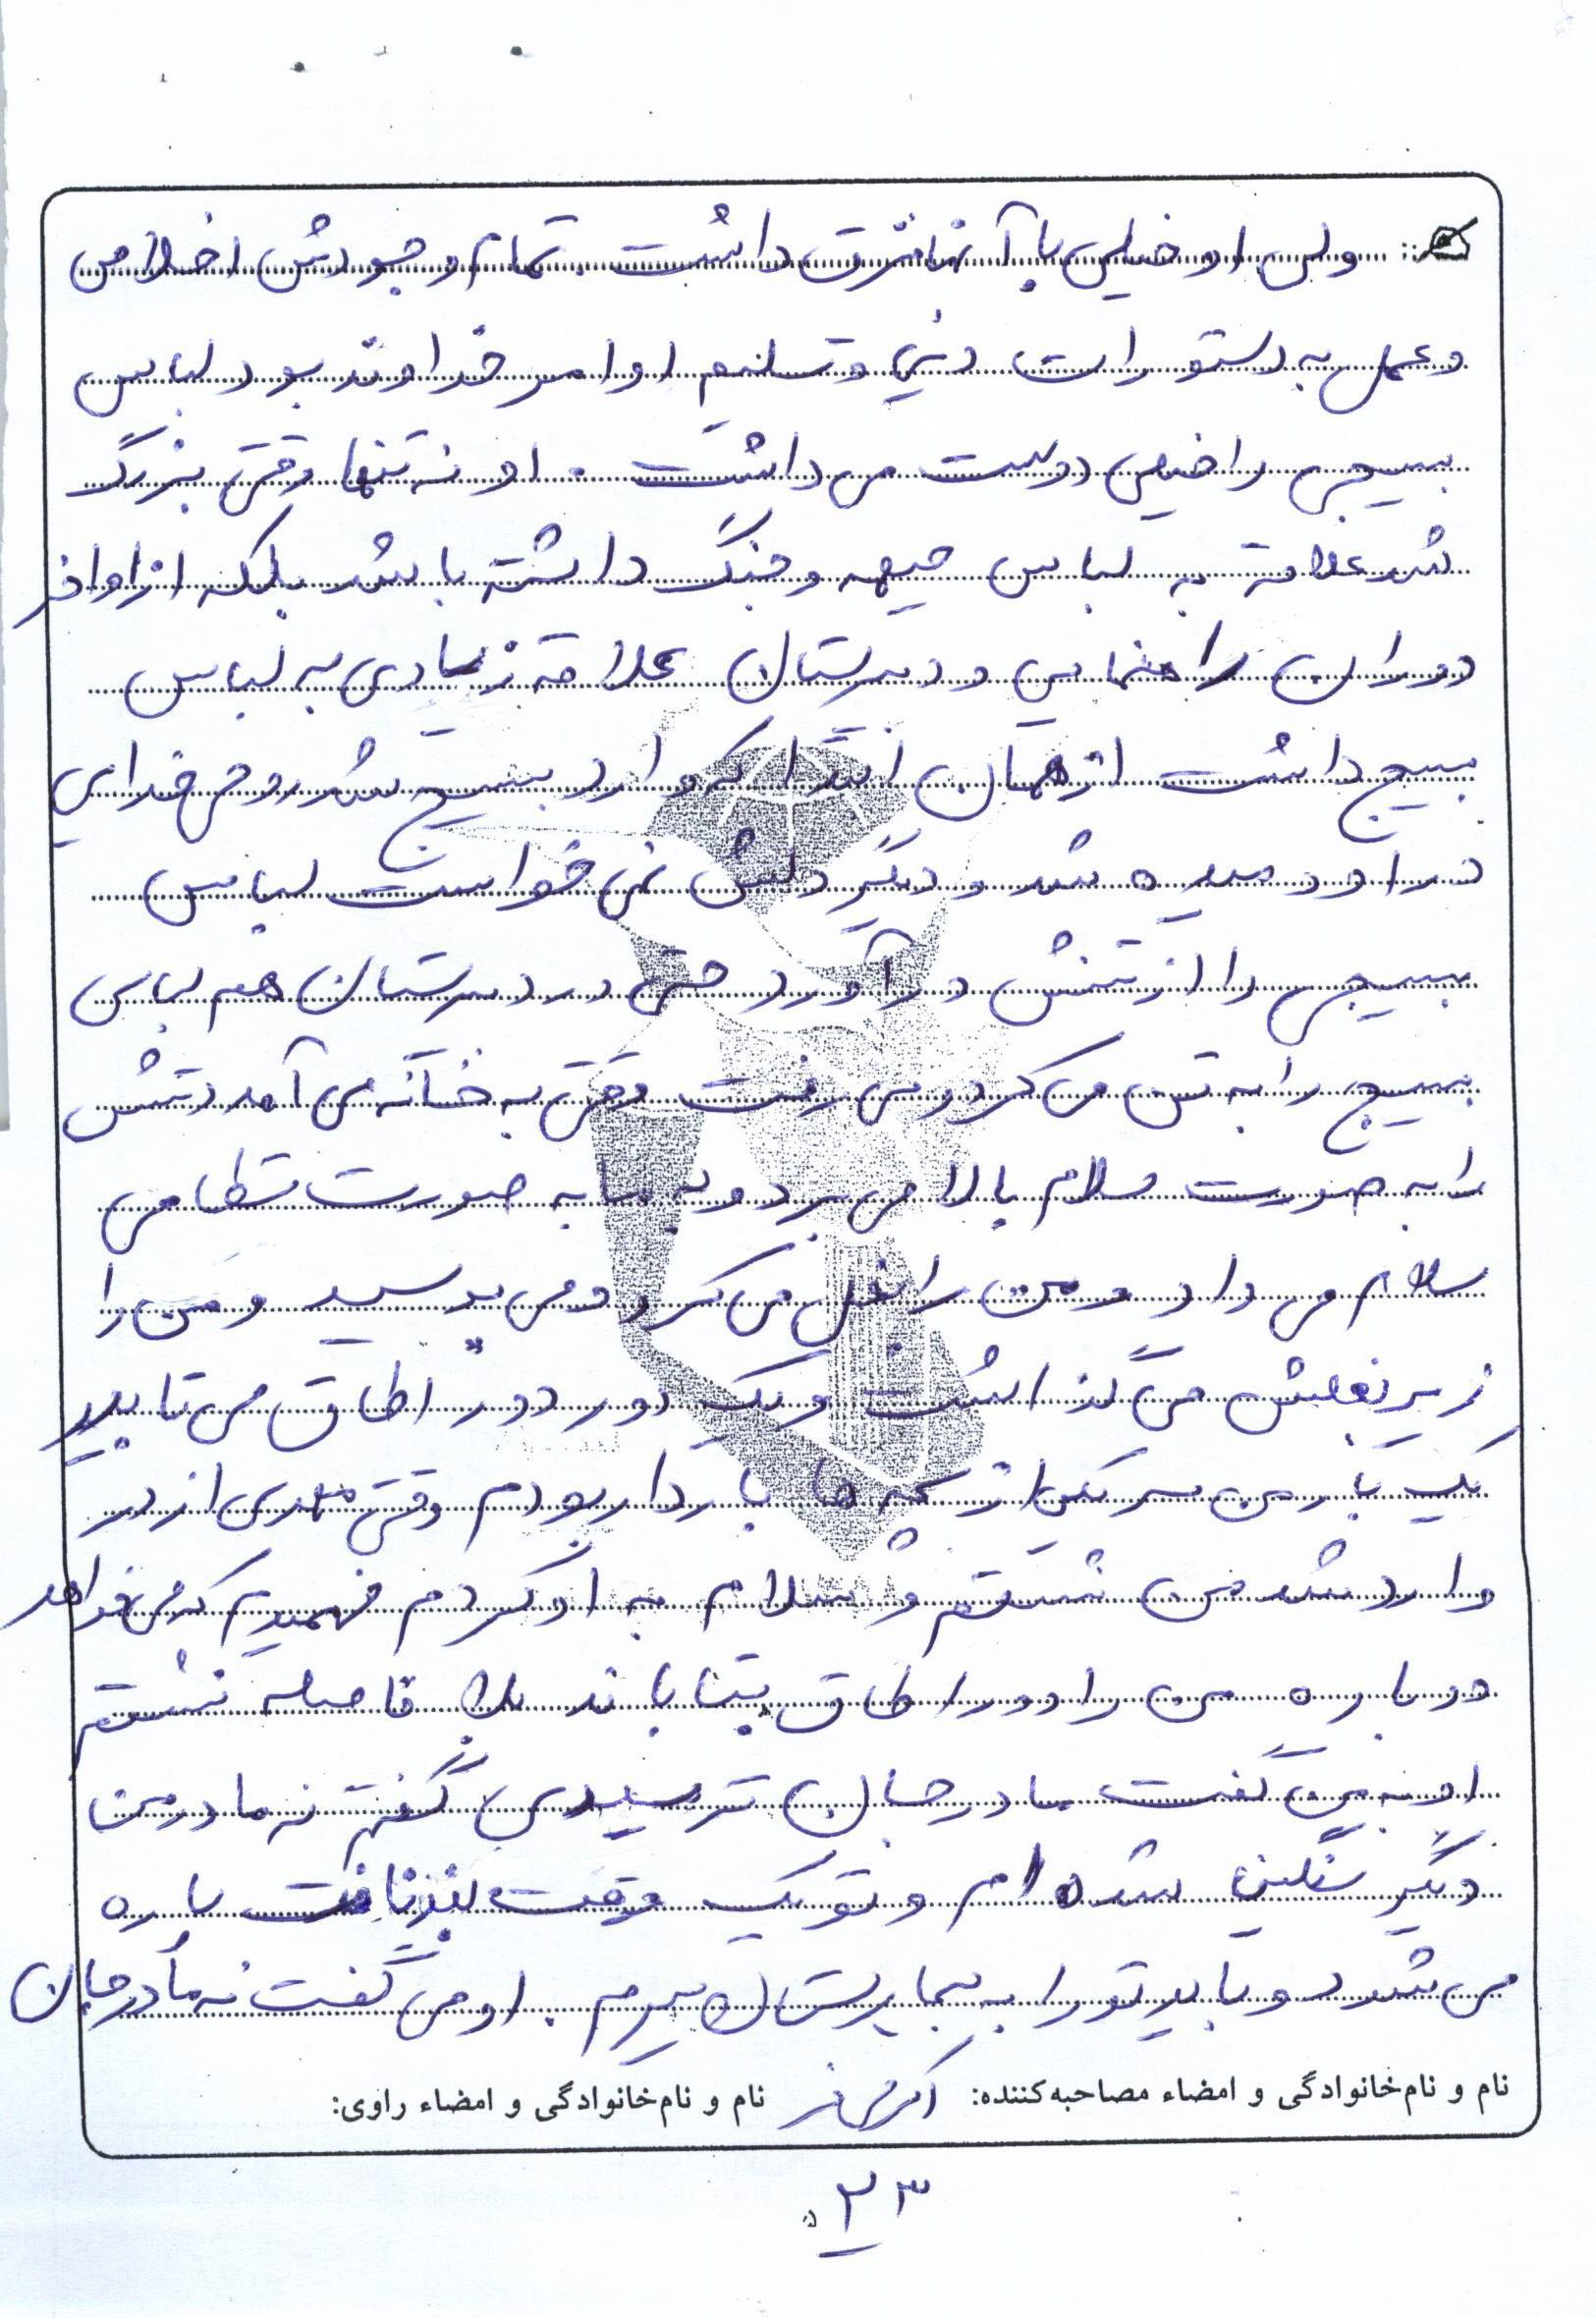 ولی او خیلی با آنها فرق داشت. تمام وجودش اخلاص
و عمل به دستورات دینی و تسلیم اوامر خداوند بود لباس
بسیجی را خیلی دوست می داشت. او نه تنها وقتی بزرگ
شد علاقه به لباس جبهه و جنگ داشته باشد بلکه از اواخر
دوران راهنمایی و دبیرستان علاقه زیادی به لباس
بسیج داشت از همان ابتدا که وارد بسیج شد روح خدایی
در او دمیده شد و دیگر دلش نمی خواست لباس
بسیجی را از تنش در آورد حتی در دبیرستان هم لباس
بسیج را به تن می کرد و می رفت وقتی به خانه می آمد دستش
را به صورت سلام بالا می برد و به ما به صورت نظامی
سلام می داد و من را بغل می کرد و می بوسید و من را
زیر بغلش می گذاشت و یک دور دور اطاق می تابید
یک بار من سر یکی از بچه ها باردار بودم وقتی مهدی از در
وارد شد من نشستم و سلام به او کردم فهمیدم که می خواهد
دوباره من را دور اطاق بتاباند بلا فاصله نشستم
او به من گفت مادر جان ترسیدی گفتم نه مادر من
دیگر سنگین شده ام و تو یک وقت پاره
می شود و باید تو را به بیمارستان ببرم. او می گفت نه مادر جان
نام و نام خانوادگی و امضاء مصاحبه کننده: نام و نام خانوادگی و امضاء راوی:
۲۳